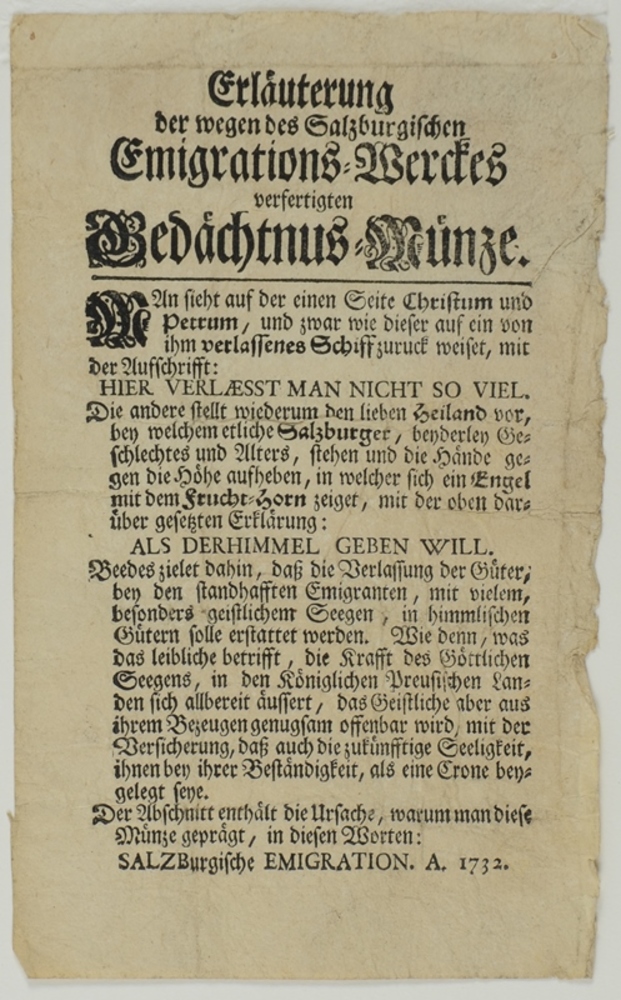 Erläuterung
der wegen des Salzburgischen
Emigrations-Werckes
verfertigten
Gedächtnus-Münze.
MAn sieht auf der einen Seite Christum und
Petrum, und zwar wie dieser auf ein von
ihm verlassenes Schiff zuruck weiset, mit
der Aufschrifft:
HIER VERLÆSST MAN NICHT SO VIEL.
Die andere stellt wiederum den lieben Heiland vor,
bey welchem etliche Salzburger, beyderley Ge-
schlechtes und Alters, stehen und die Hände ge-
gen die Höhe aufheben, in welcher sich ein Engel
mit dem Frucht-Horn zeiget, mit der oben dar-
über gesetzten Erklärung:
ALS DERHIMMEL GEBEN WILL.
Beedes zielet dahin, daß die Verlassung der Güter,
bey den standhafften Emigranten, mit vielem,
besonders geistlichem Seegen, in himmlischen
Gütern solle erstattet werden. Wie denn, was
das leibliche betrifft, die Krafft des Göttlichen
Seegens, in den Königlichen Preusischen Lan-
den sich allbereit äussert, das Geistliche aber aus
ihrem Bezeugen genugsam offenbar wird, mit der
Versicherung, daß auch die zukünfftige Seeligkeit,
ihnen bey ihrer Beständigkeit, als eine Crone bey-
gelegt seye.
Der Abschnitt enthält die Ursache, warum man diese
Münze geprägt, in diesen Worten:
SALZBurgische EMIGRATION. A. 1732.